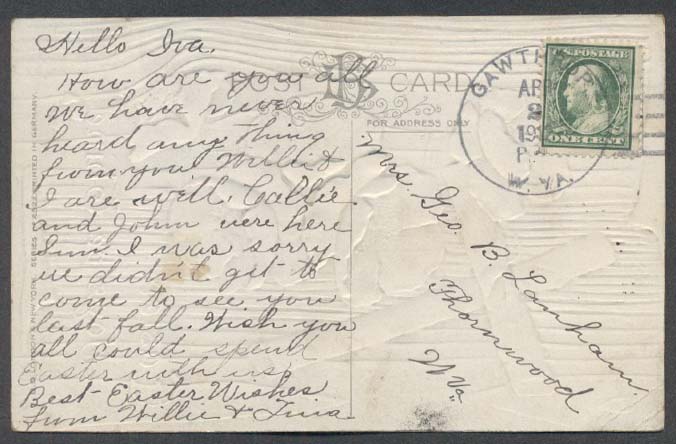 Hello Iva.
How are you all
We have never
heard any thing
from you Willie &
I are well. Callie
and John were here
Sun. I was sorry
we didn't get to
come to see you
last fall. Wish you
all could spend
Easter with us
Best Easter Wishes
from Willie & Tina
POST CARD
FOR ADDRESS ONLY
Mrs. Geo. B. Lanham.
Thornwood
W Va.
AP
2
19
P
W. VA.
U.S. POSTAGE
ONE CENT
PRINTED IN GERMANY.